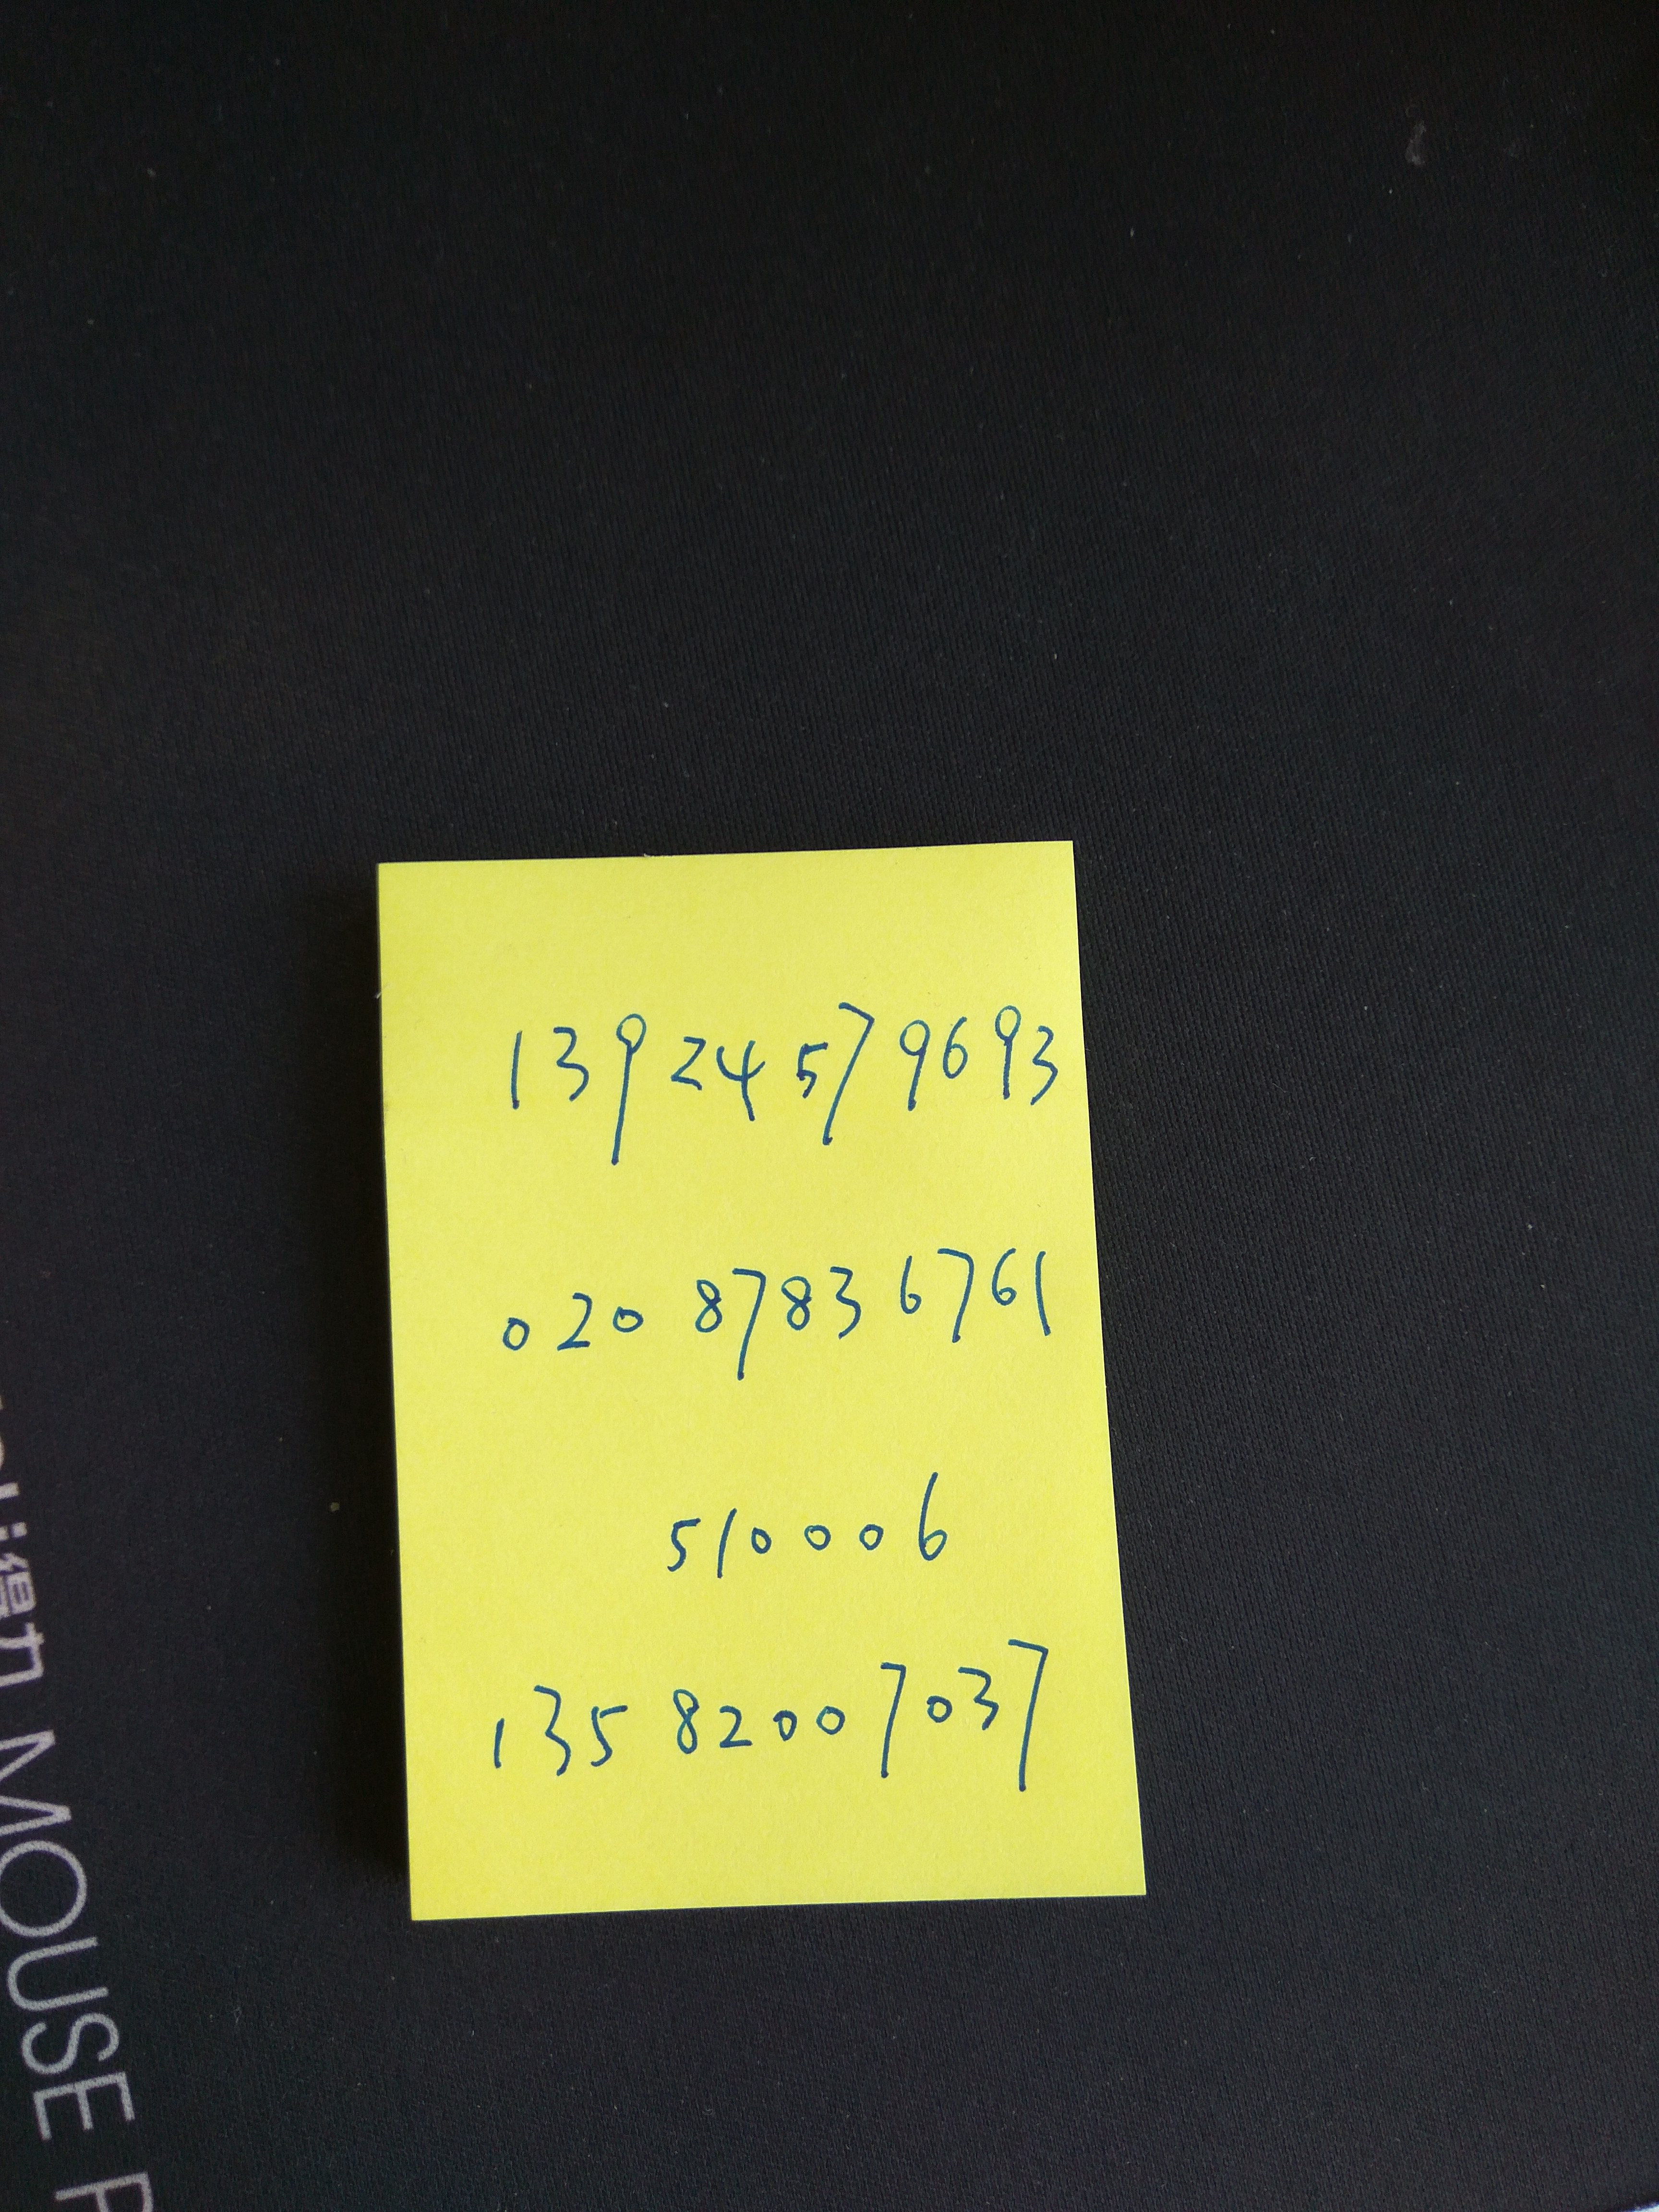 139 245 79693
020 8783 6761
510006
135 8200 7037
得力 MOUSE P